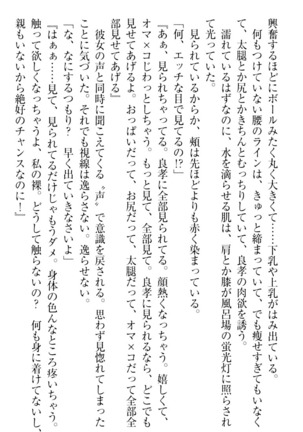 興奮するほどにボールみたく丸く大きくて……下乳や上乳がはみ出ている。
何もつけていない腰のラインは、きゅっと締まっていて、でも痩せすぎてもいなく
て、太腿とか尻とかきちんとむっちりしていて、良孝の肉欲を誘う。
濡れているはずなのに、水を滴らせる肌は、肩とか膝が風呂場の蛍光灯に照らされ
て光っていた。
見られているからか、頬は先ほどよりも赤く染まっている。
「何、エッチな目で見てるの!?」
『あぁ、見られちゃってる。良孝に全部見られてる。顔熱くなっちゃう。嬉しくて、
オマ×コじわっとしちゃう。もっと見て、全部見て。良孝に見られるなら、どこでも
見せてあげるよ。おっぱいだって、お尻だって、太腿だって、オマ×コだって全部全
部見せてあげる』
彼女の声と同時に聞こえてくる〝声〟で意識を戻される。思わず見惚れてしまった
ことに気づいた。それでも視線は逸らさない。逸らせない。
「な、なにするつもり? 早く出ていきなさいよ」
『はぁぁ……見て、見られてるだけじゃもうダメ。身体の色んなところ疼いちゃう。
触って欲しくなっちゃうよ、私の裸。どうして触らないの? 何も身に着けてないし、
親もいないから絶好のチャンスなのにー』